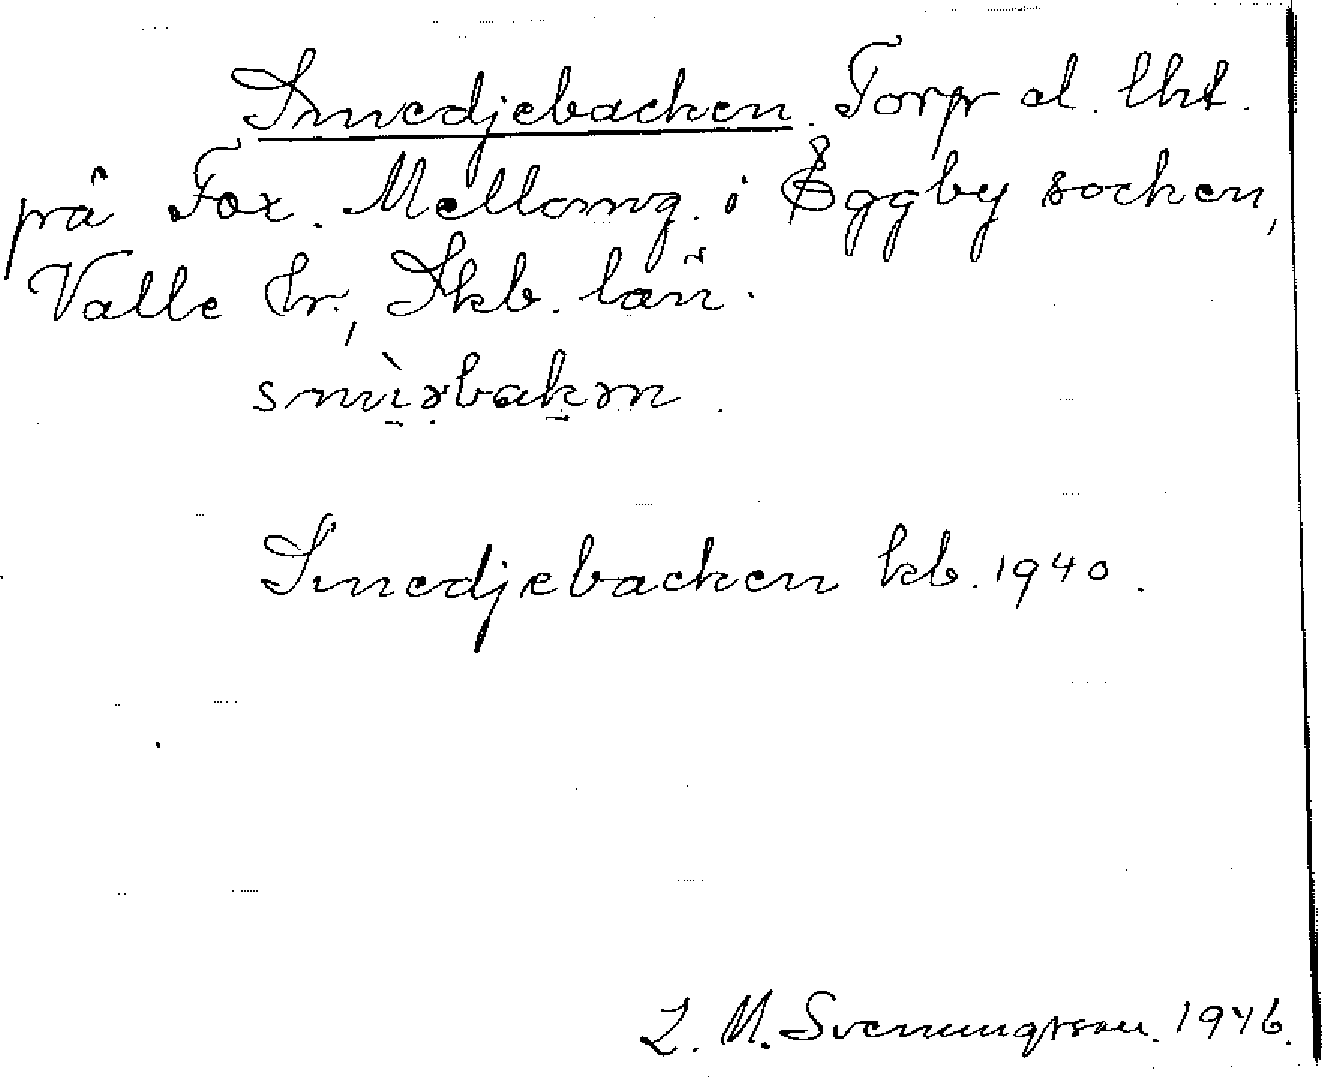 Smedjebacken. Torp el. lht.
på Fox. Mellomg. i Eggby socken,
Valle hr., Skb. län.
smìəbakən.
Smedjebacken kb. 1940.
L. M. Svenungsson. 1946.